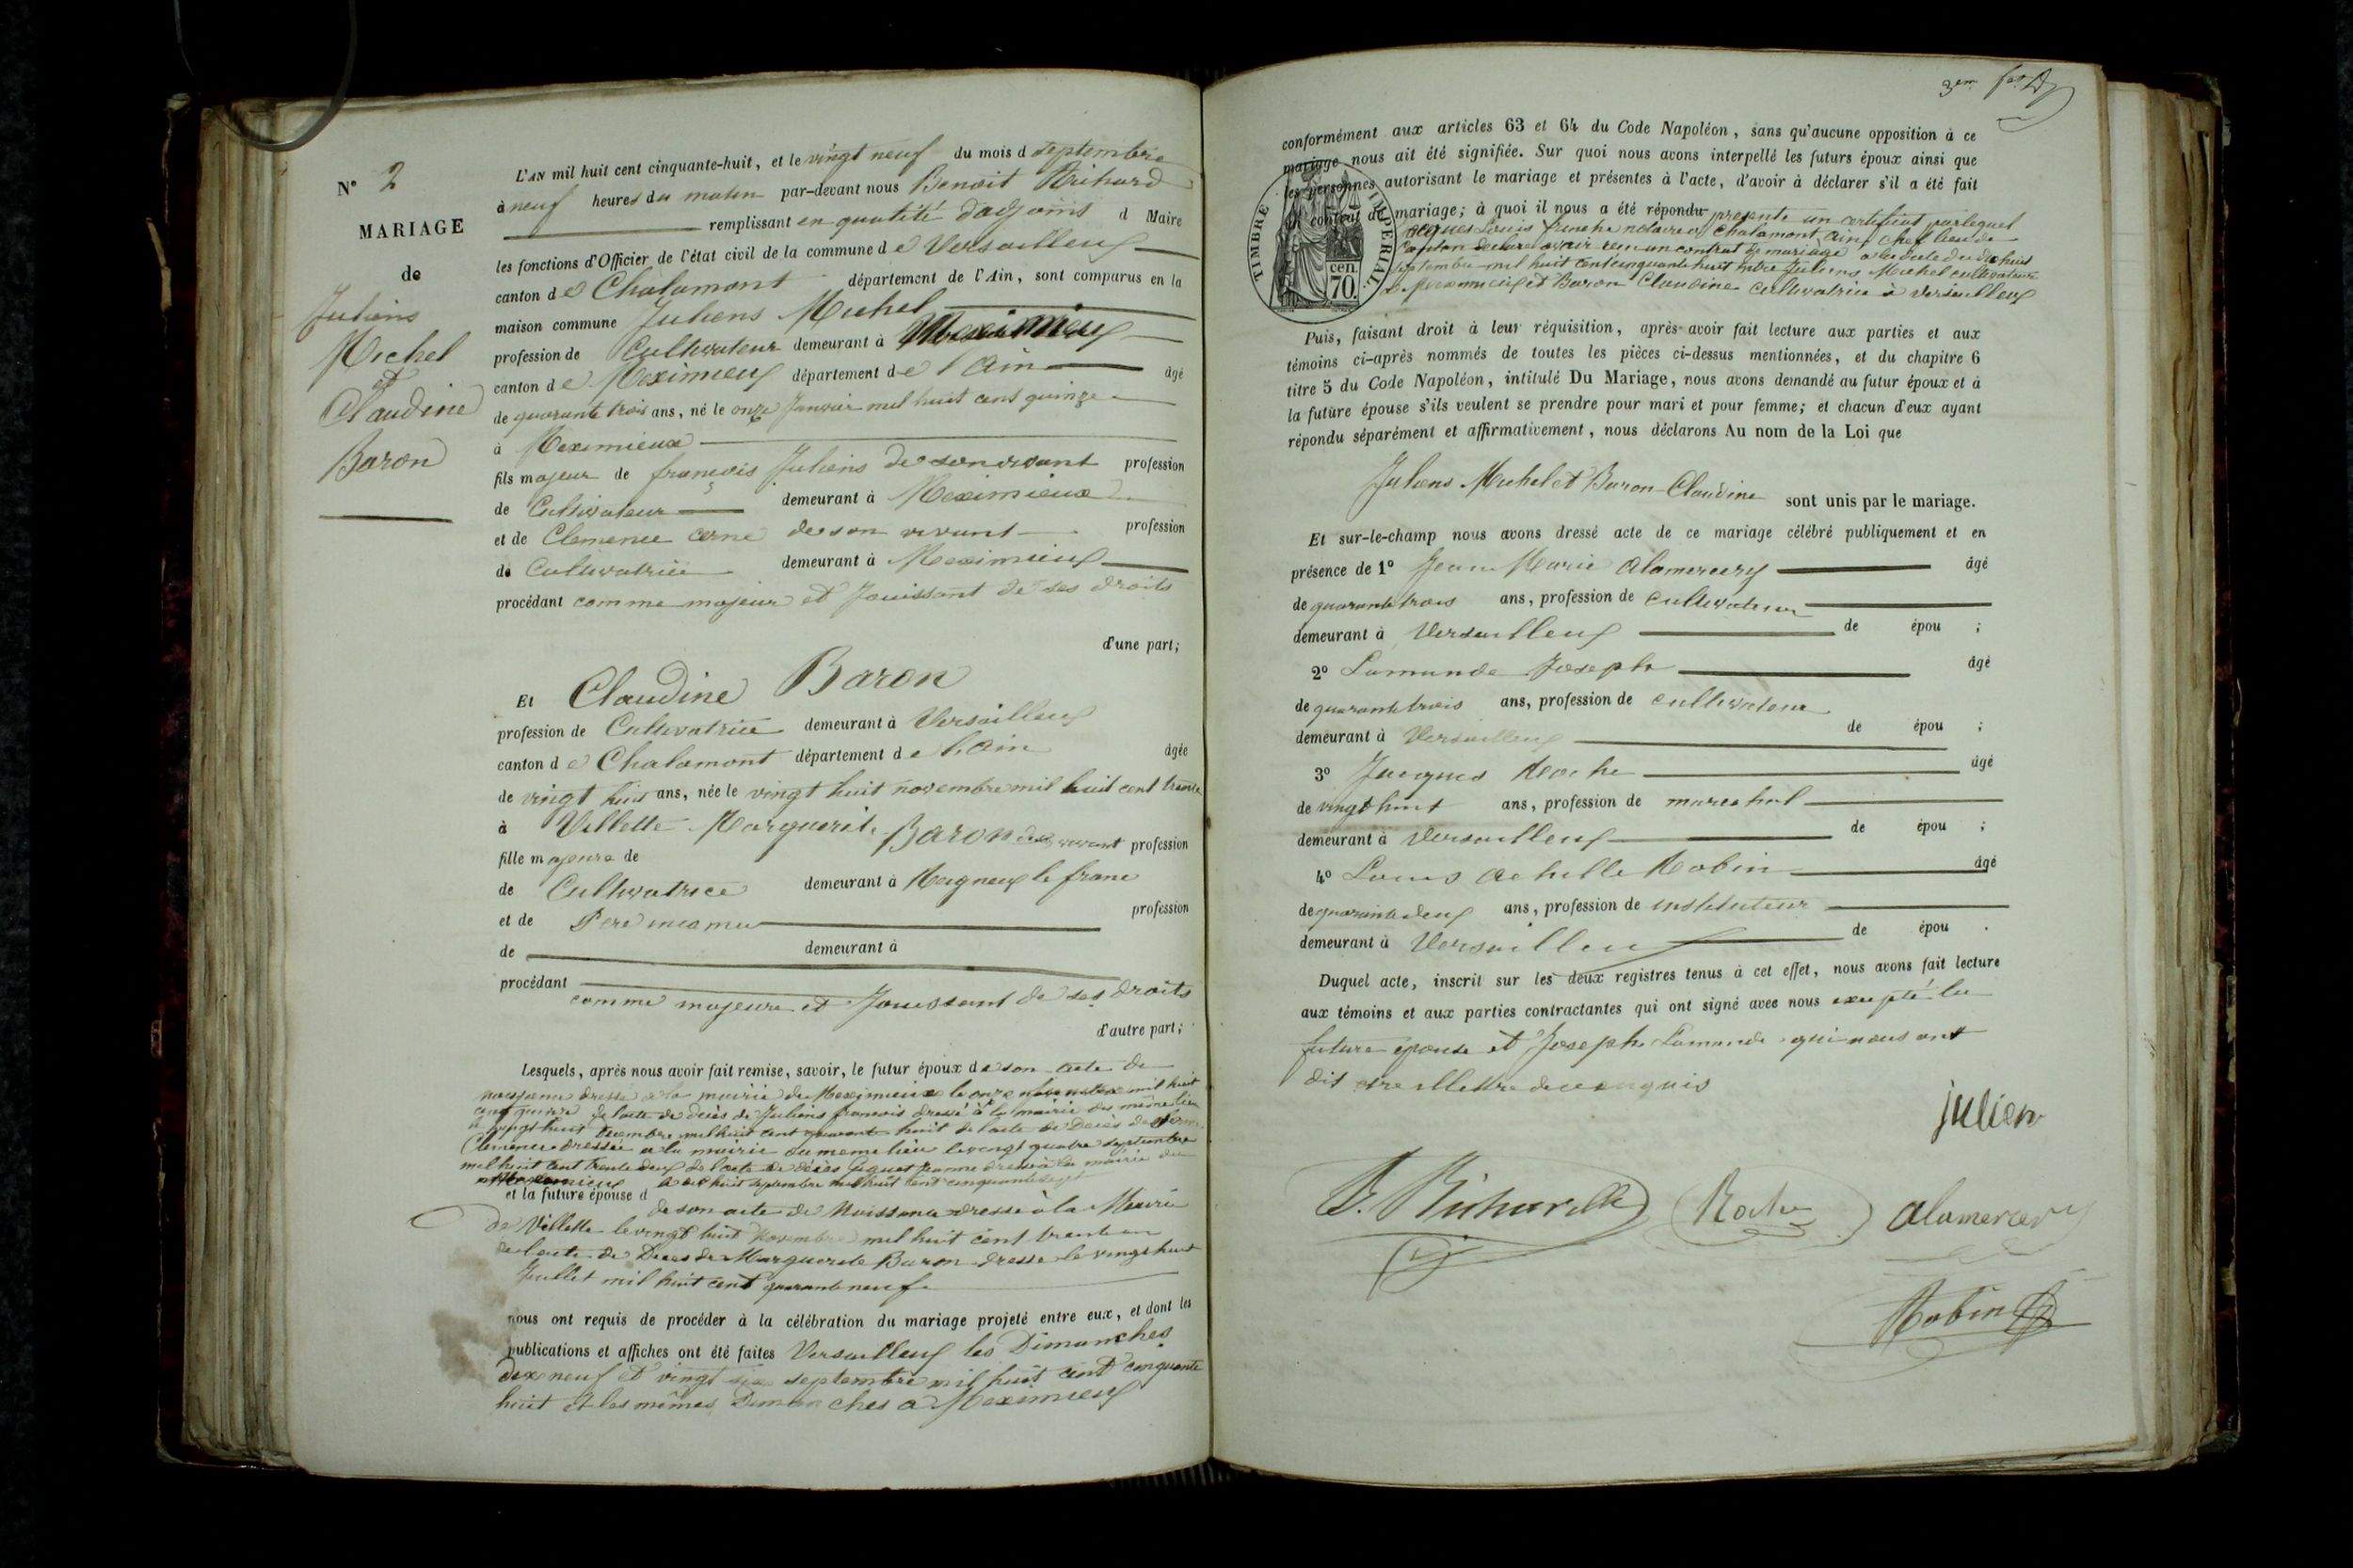 N° 2
MARIAGE
de
Juliens
Michel
et
Claudine
Baron
L'AN mil huit cent cinquante-huit, et le vingt neuf du mois d septembre
à neuf heures du matin par-devant nous Benoit Richard
remplissant en quatité d'adjoint d Maire
les fonctions d'Officier de l'état civil de la commune de Versailleux
canton de Chalamont département de l'Ain, sont comparus en la
maison commune Juliens Michel
profession de Cultivateur demeurant à Meximieux
canton de Meximieux département de l'Ain âgé
de quarante trois ans, né le onze Janvier mil huit cent quinze
à Meximieux
fils majeur de françois Juliens de son vivant profession
de Cultivateur demeurant à Meximieux
et de Clemence cerne de son vivant profession
de Cultivatrice demeurant à Meximieux
procédant comme majeur et Jouissant de ses droits
d'une part;
Et Claudine Baron
profession de Cultivatrice demeurant à Versailleux
canton de Chalamont département de l'Ain âgée
de vingt huit ans, née le vingt huit novembre mil huit cent trente
à Villette Marguerite Baron de vivant profession
fille majeure de
de Cultivatrice demeurant à Rigneux le franc
et de Père inconnu profession
de demeurant à
procédant
comme majeure et Jouissant de ses droits
d'autre part;
Lesquels, après nous avoir fait remise, savoir, le futur époux de son acte de
naissance dressé à la mairie de Meximieux le onze mil huit
cent quinze de l'acte de décès de Juliens francois dressé à la mairie du même lieu
le vingt huit decembre mil huit cent quarante huit de l'acte de Décès de
Clemence dressée a la mairie du meme lieu le vingt quatre septembre
mil huit cent trente deux de l'acte de décès Jeanne dressé à la mairie de
Meximieux le dix huit septembre mil huit cent cinquante sept
et la future épouse d
de son acte de Naissance dressé à la Mairie
de Villette le vingt huit Novembre mil huit cent trente
de l'acte de Deces de Marguerite Baron dressé le vingt huit
Juillet mil huit cent quarante neuf
nous ont requis de procéder à la célébration du mariage projeté entre eux, et dont les
publications et affiches ont été faites Versailleux les Dimanches
dix neuf et vingt six septembre mil huit cent cinquante
huit et les mêmes Dimanches a Meximieux
3em
conformément aux articles 63 et 64 du Code Napoléon, sans qu'aucune opposition à ce
mariage nous ait été signifiée. Sur quoi nous avons interpellé les futurs époux ainsi que
les personnes autorisant le mariage et présentes à l'acte, d'avoir à déclarer s'il a été fait
un contrat de mariage; à quoi il nous a été répondu presente un certificat par lequel
Jacques Louis notaire a Chalamont Ain chef lieu de
Canton declare avoir recu un contrat de mariage a la date du dix huit
septembre mil huit cent cinquante huit entre Juliens Michel cultivateur
a Meximieux et Baron Claudine cultivatrice à Versailleux
TIMBRE IMPÉRIAL
70 cen.
Puis, faisant droit à leur réquisition, après avoir fait lecture aux parties et aux
témoins ci-après nommés de toutes les pièces ci-dessus mentionnées, et du chapitre 6
titre 5 du Code Napoléon, intitulé Du Mariage, nous avons demandé au futur époux et à
la future épouse s'ils veulent se prendre pour mari et pour femme; et chacun d'eux ayant
répondu séparément et affirmativement, nous déclarons Au nom de la Loi que
Juliens Michel et Baron Claudine sont unis par le mariage.
Et sur-le-champ nous avons dressé acte de ce mariage célébré publiquement et en
présence de 1° Jean Marie Alamercery âgé
de quarante trois ans, profession de cultivateur
demeurant à Versailleux de épou ;
2° Lamande Joseph âgé
de quarante trois ans, profession de cultivateur
demeurant à Versailleux de épou ;
3° Jacques Roche âgé
de vingt huit ans, profession de marechal
demeurant à Versailleux de épou ;
4° Louis Achille Robin âgé
de quarante deux ans, profession de instituteur
demeurant à Versailleux de épou .
Duquel acte, inscrit sur les deux registres tenus à cet effet, nous avons fait lecture
aux témoins et aux parties contractantes qui ont signé avec nous excepté la
future épouse et Joseph Lamande qui nous ont
dit etre illettré de ce enquis
julien
B. Richard
Roche
Alamercery
Robin